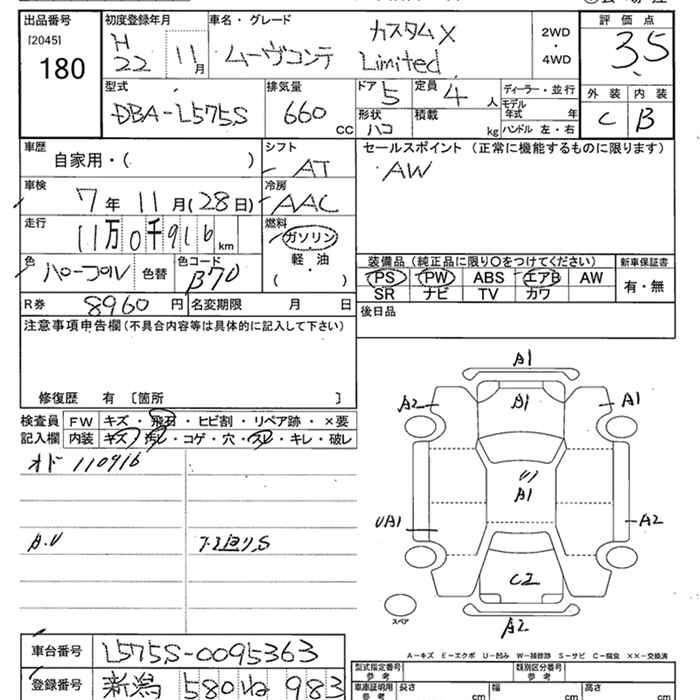 出品番号 初度登録年月 車名・グレード 評価点
[2045] H 22 11月 ムーヴコンテ カスタムX Limited 2WD・4WD 3.5
180
型式 排気量 ドア 5 定員 4人 ディーラー・並行 外装 内装
DBA-L575S 660cc 形状 ハコ 積載 kg モデル年式 年 C B
ハンドル 左・右
車歴 自家用・( ) シフト AT セールスポイント (正常に機能するものに限ります)
AW
車検 7年11月(28日) 冷房 AAC
走行 11万0千916km 燃料 ガソリン
軽・油
( )
色 パープル 色替 色コード B70
装備品 (純正品に限り○をつけてください) 新車保証書
PS PW ABS エアB AW 有・無
SR ナビ TV カワ
R券 8960円 名変期限 月 日 後日品
注意事項申告欄 (不具合内容等は具体的に記入して下さい)
修復歴 有 〔箇所 〕
検査員 FW キズ・飛石・ヒビ割・リペア跡・×要
記入欄 内装 キズ・汚レ・コゲ・穴・スレ・キレ・破レ
オド 110916
A.U
A1
A2 A1 A1
U1
A1
UA1 A2
C2
スペア
A2
A-キズ E-エクボ U-凹み W-補修跡 S-サビ C-腐食 ××-交換済
車台番号 L575S-0095363
登録番号 新潟 580 ね 983
型式指定番号 参考 類別区分番号 参考
車庫証明用 参考 長さ cm 幅 cm 高さ cm